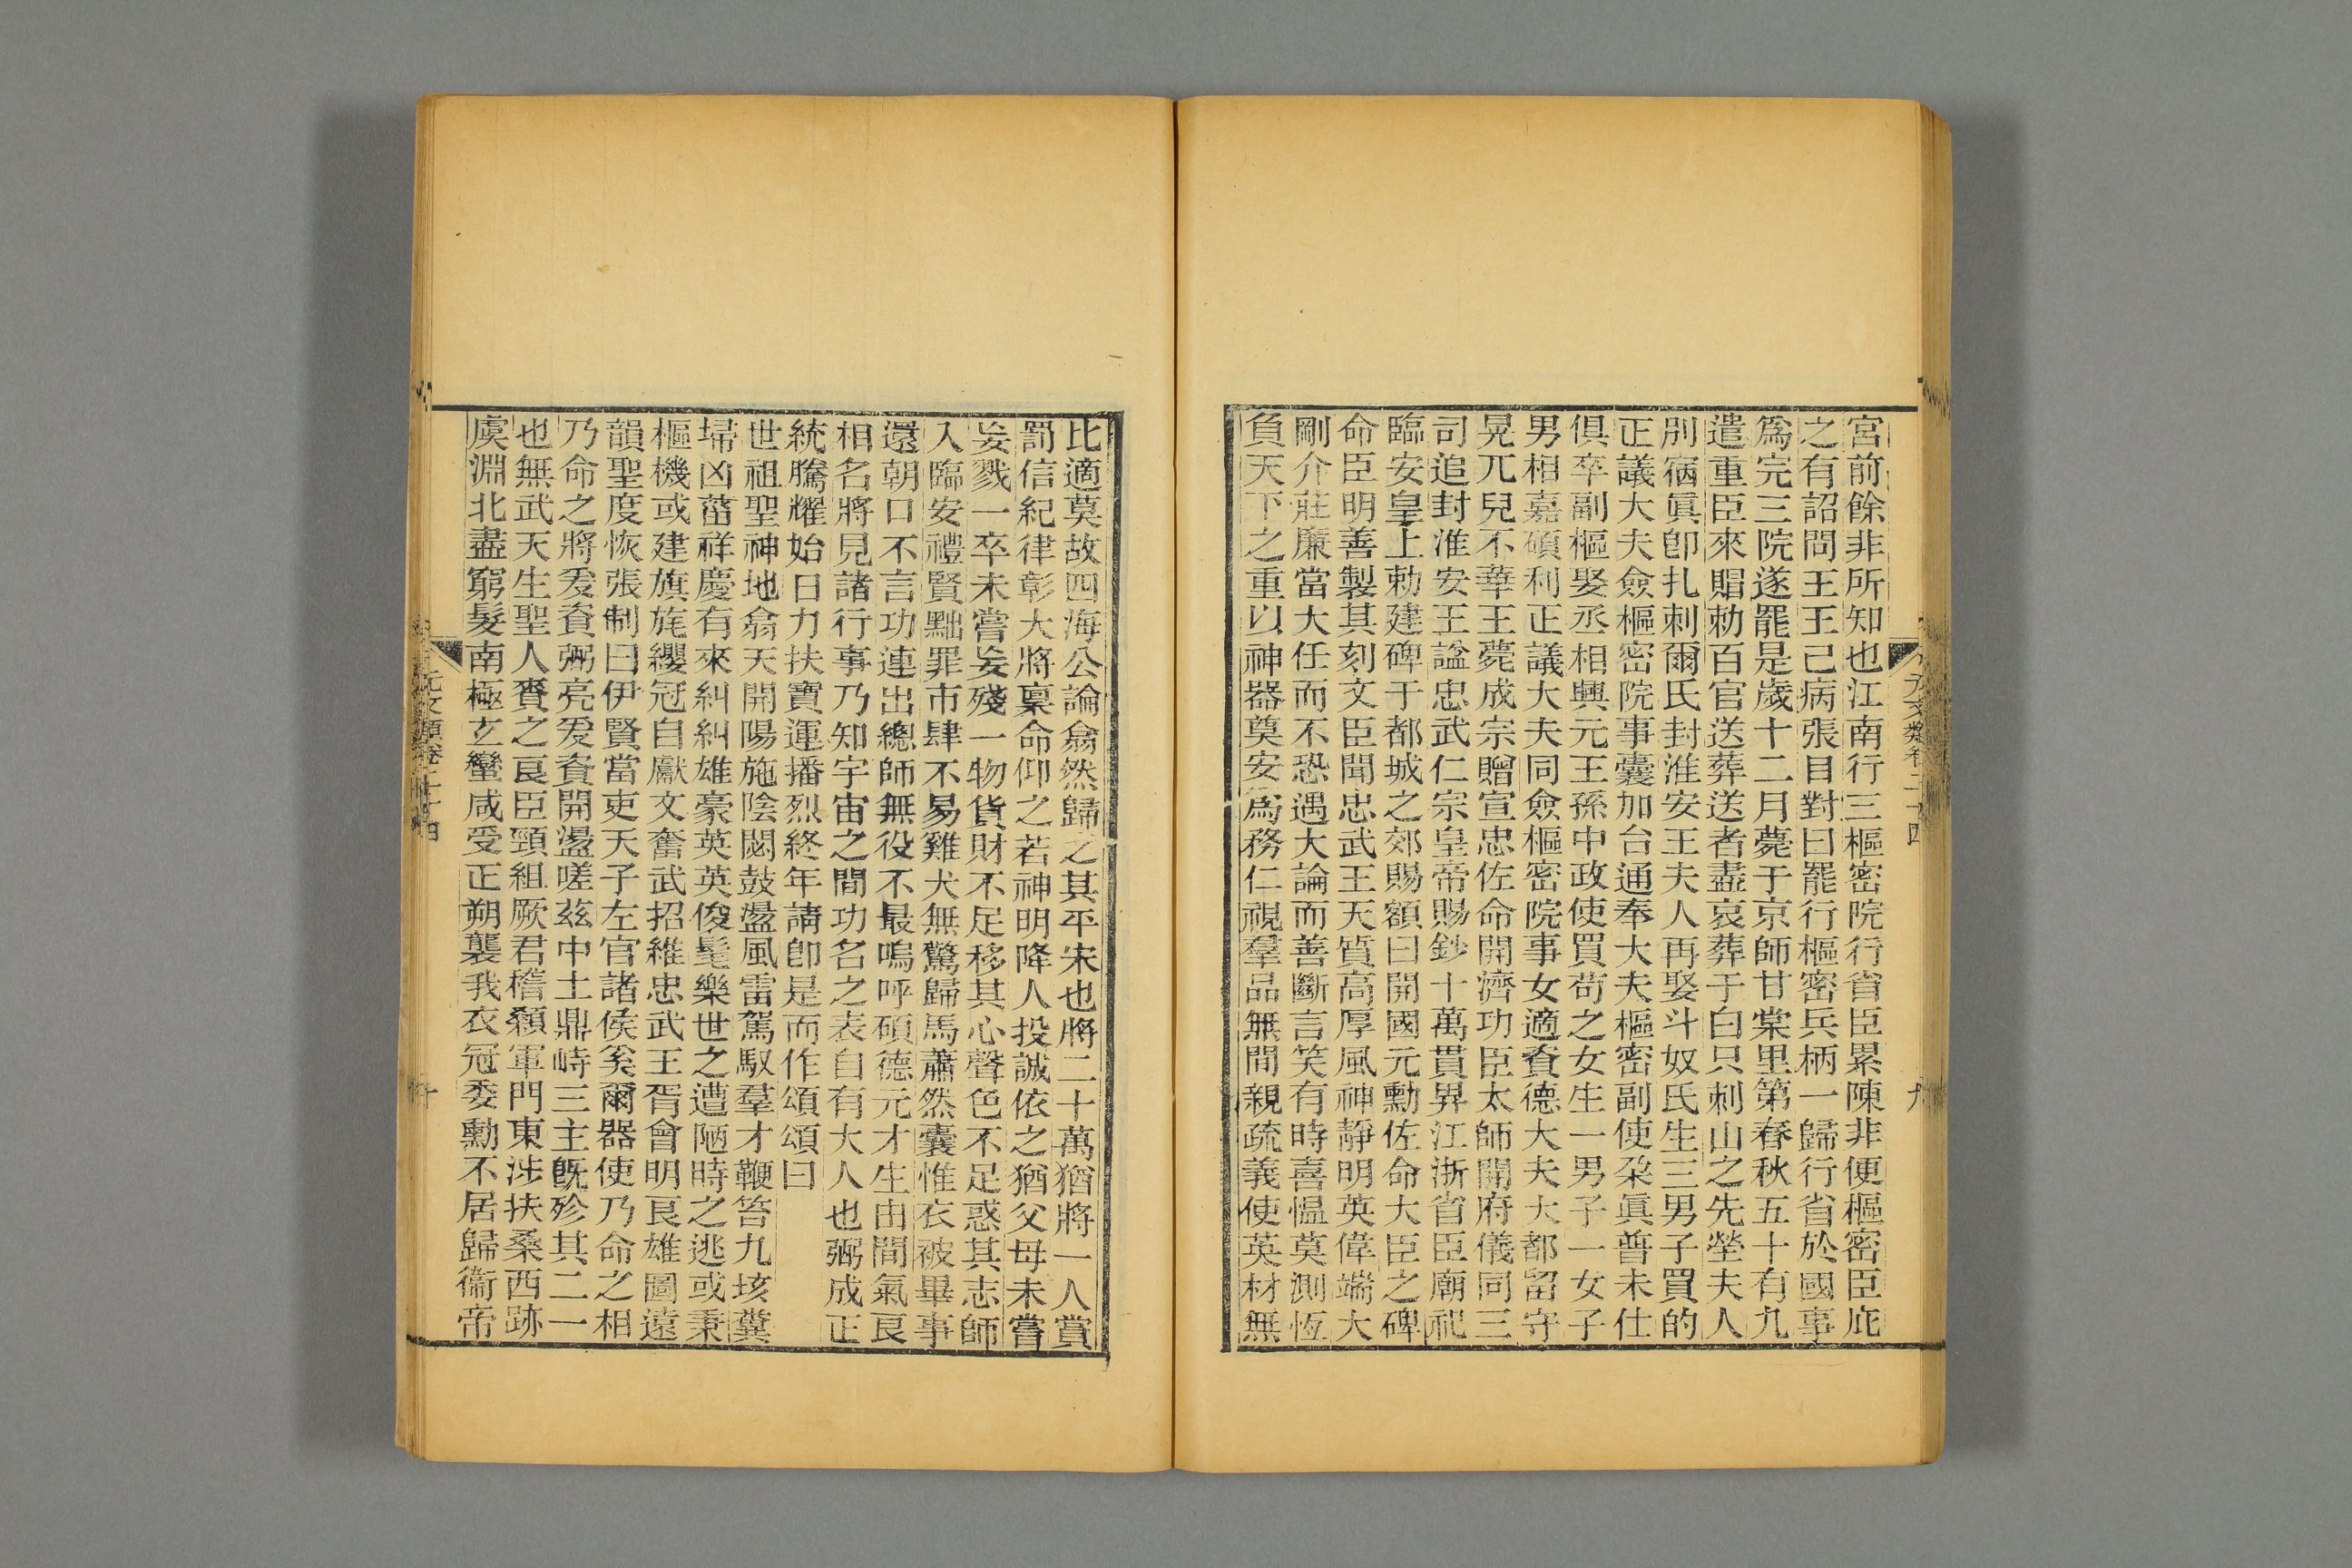 宮前餘非所知也江南行三樞密院行省臣累陳非便樞密臣庇
之有詔問王王己病張目對曰罷行樞密兵柄一歸行省於國事
爲完三院遂罷是歲十二月薨于京師甘棠里第春秋五十有九
遣重臣來賵勅百官送葬送者盡哀葬于白只刺山之先塋夫人
別宿眞卽扎刺爾氏封淮安王夫人再娶斗奴氏生三男子買的
正議大夫僉樞密院事囊加台通奉大夫樞密副使朶眞普未仕
俱卒副樞娶丞相興元王孫中政使買苟之女生一男子一女子
男相嘉碩利正議大夫同僉樞密院事女適資德大夫大都留守
晃兀兒不華王薨成宗贈宣忠佐命開濟功臣太師開府儀同三
司追封淮安王諡忠武仁宗皇帝賜鈔十萬貫界江浙省臣廟祀
臨安皇上勅建碑于都城之郊賜額曰開國元勳佐命大臣之碑
命臣明善製其刻文臣聞忠武王天質高厚風神靜明英偉端大
剛介莊廉當大任而不恐遇大論而善斷言笑有時喜慍莫測恆
負天下之重以神器奠安爲務仁視羣品無間親疏義使英材無
元文類卷二十四
九
比適莫故四海公論翕然歸之其平宋也將二十萬猶將一人賞
罰信紀律彰大將稟命仰之若神明降人投誠依之猶父母未嘗
妄戮一卒未嘗妄殘一物貨財不足移其心聲色不足惑其志師
入臨安禮賢黜罪市肆不易雞犬無驚歸馬蕭然囊惟衣被畢事
還朝口不言功連出總師無役不最嗚呼碩德元才生由間氣良
相名將見諸行事乃知宇宙之間功名之表自有大人也弼成正
統騰耀始日力扶寶運播烈終年請卽是而作頌頌曰
世祖聖神地翕天開陽施陰閟鼓盪風雷駕馭羣才鞭笞九垓糞
埽凶菑祥慶有來糾糾雄豪英英俊髦樂世之遭陋時之逃或秉
樞機或建旗旄纓冠自獻文奮武招維忠武王胥會明良雄圖遠
韻聖度恢張制曰伊賢當吏天子左官諸侯奚爾器使乃命之相
乃命之將爰資弼亮爰資開盪嗟茲中土鼎峙三主旣殄其二一
也無武天生聖人賚之良臣頸組厥君稽顙軍門東涉扶桑西跡
虞淵北盡窮髮南極玄蠻咸受正朔襲我衣冠委勳不居歸衞帝
元文類卷二十四
十